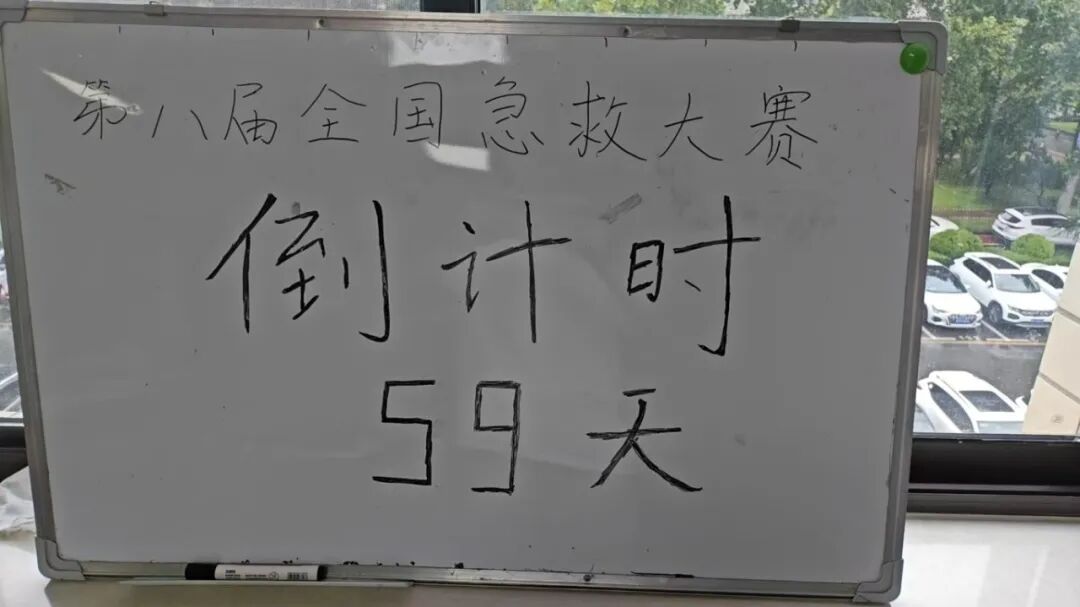 第八届全国急救大赛
倒计时
59天